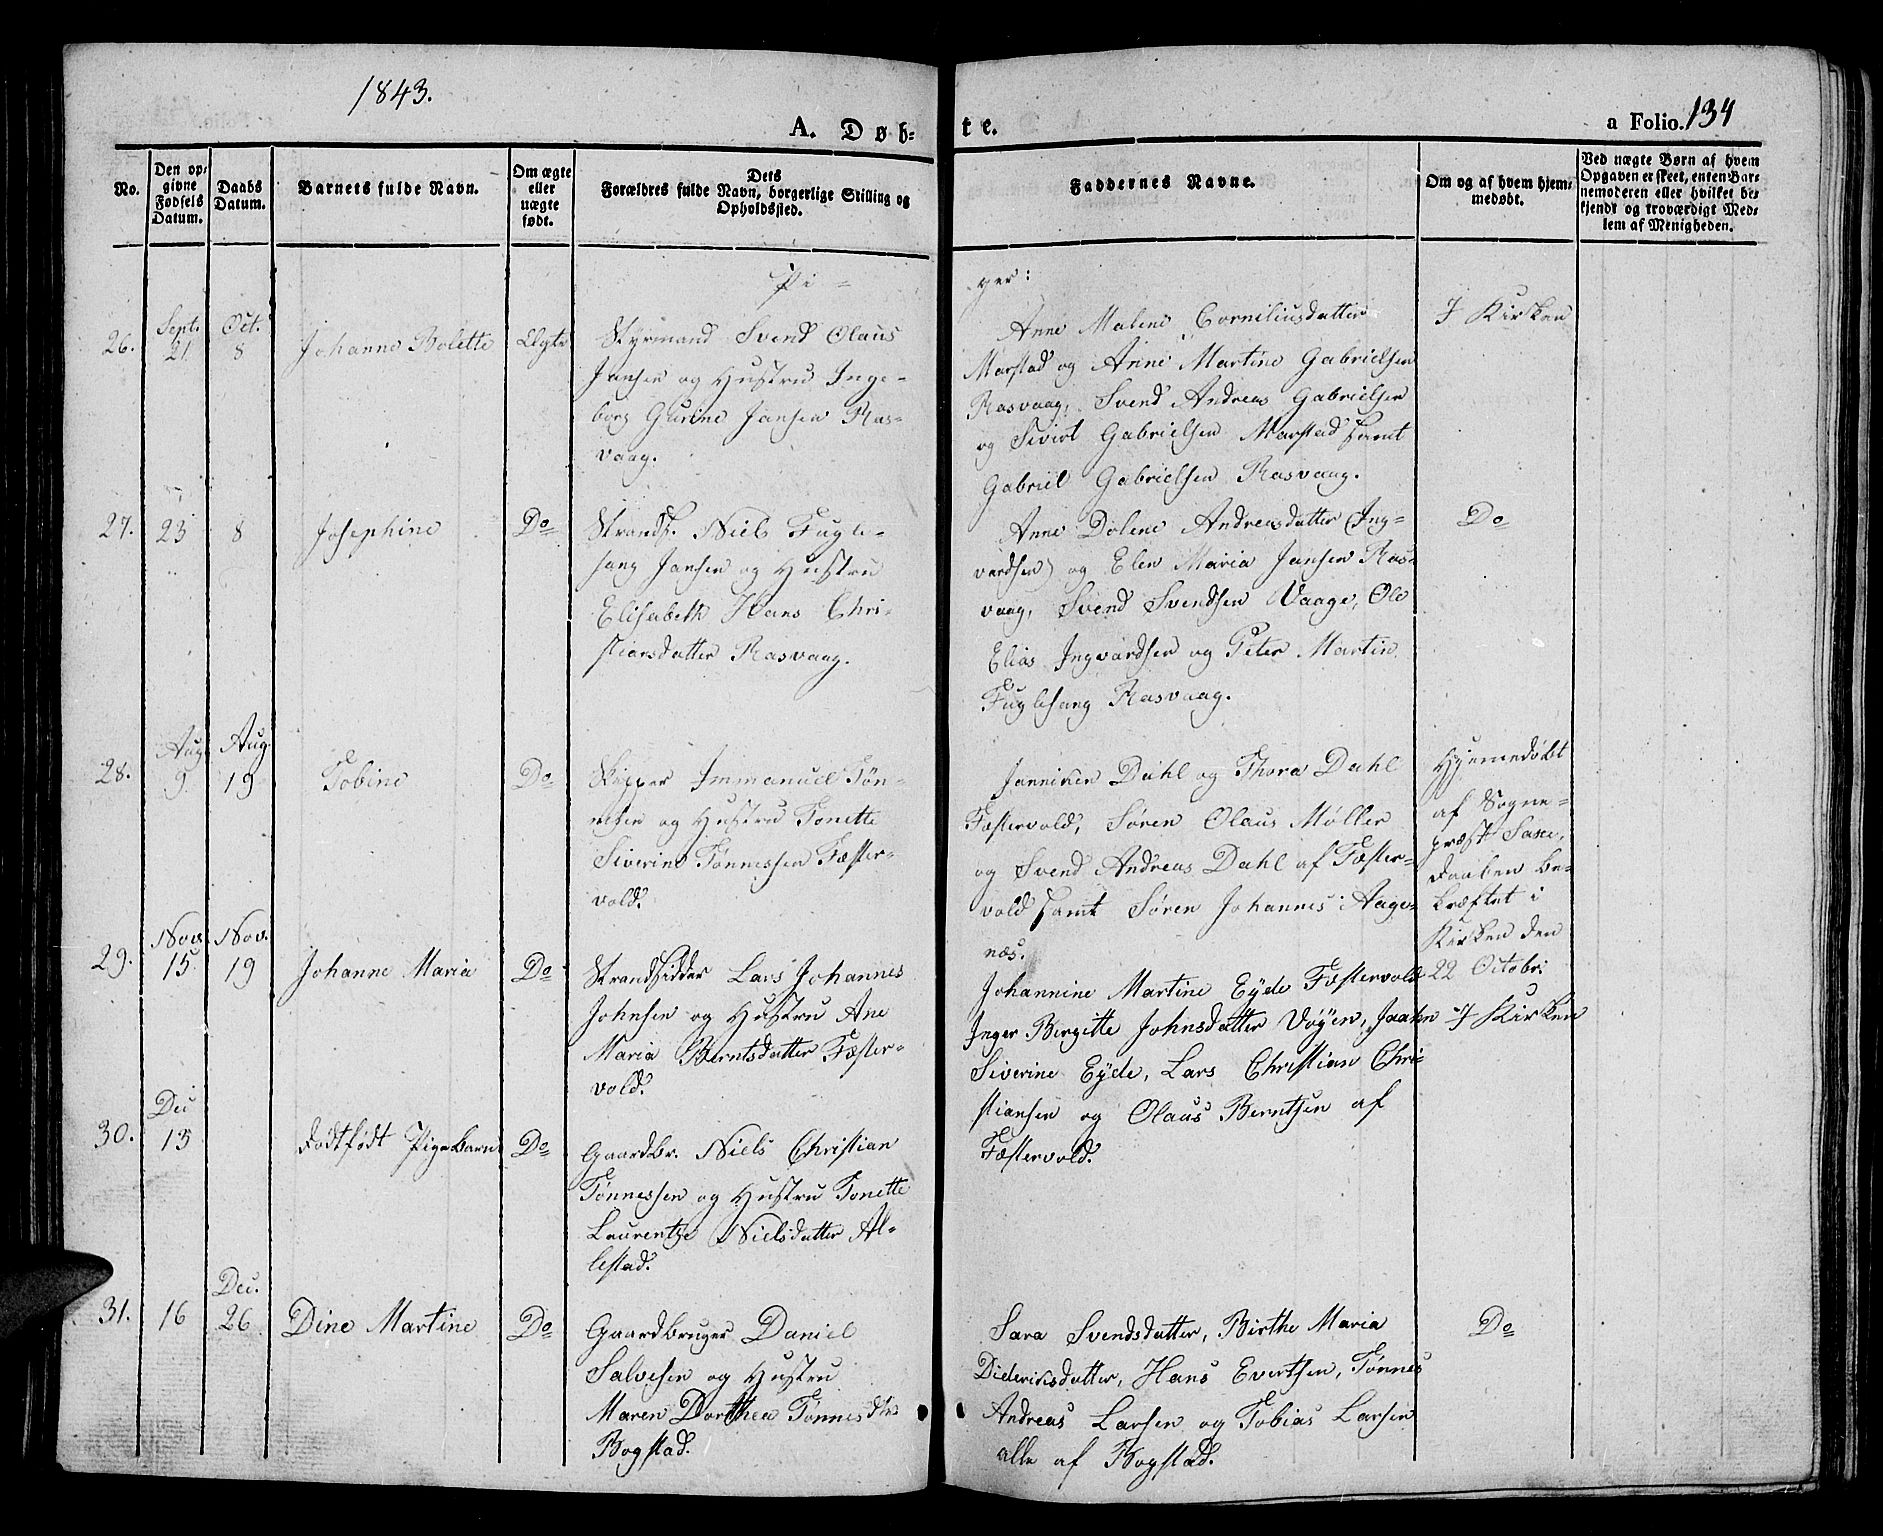 1843.
A. Døb-
te.
a Folio. 134
No.
Den op-
givne
Fødsels
Datum.
Daabs
Datum.
Barnets fulde Navn.
Om ægte
eller
uægte
født.
Dets
Forældres fulde Navn, borgerlige Stilling og
Opholdssted.
Faddernes Navne.
Om og af hvem hjem-
medøbt.
Ved uægte Børn af hvem
Opgaven er skeet, enten Bar-
nemoderen eller hvilket be-
kjendt og troværdigt Med-
lem af Menigheden.
Pi-
ger:
26.
Sept.
21.
Oct.
8
Johanne Bolette
Ægte
Styrmand Svend Olaus
Jansen og Hustru Inge-
borg Gurine Jansen Ras-
vaag.
Anne Malene Corneliusdatter
Marstad og Anne Martine Gabrielsen
Rasvaag, Svend Andreas Gabrielsen
og Sivert Gabrielsen Marstad samt
Gabriel Gabrielsen Rasvaag.
I Kirken
27.
23
8
Josephine
Do
Strands. Niels Fugle-
sang Jansen og Hustru
Elisabeth Hans Chri-
stiansdatter Rasvaag.
Anne Dolene Andreasdatter (Ing-
vardsen) og Elen Maria Jansen Ras-
vaag, Svend Svendsen Vaage, Ole
Elias Ingvardsen og Peter Martin
Fuglesang Rasvaag.
Do
28.
Aug.
9
Aug.
19
Tobine
Do
Skipper Immanuel Tøn-
nesen og Hustru Tonette
Siverine Tønnessen Fæster-
vold.
Janniken Dahl og Thora Dahl
Fæstervold, Søren Olaus Møller
og Svend Andreas Dahl af Fæster-
vold samt Søren Johannes Aage-
næs.
Hjemmedøbt
af Sogne-
præst Saxe,
Daaben be-
kræftet i
Kirken den
22 Octobr:
29.
Nov.
15
Nov.
19
Johanne Maria
Do
Strandsidder Lars Johannes
Johnsen og Hustru Ane
Maria Berntsdatter Fæster-
vold.
Johannine Martine Eyde Fæstervold
Inger Birgitte Johnsdatter Vøyen,
Siverine Eyde, Lars Christian Chri-
stiansen og Olaus Berntsen af
Fæstervold.
I Kirken
30.
Dec
15
Dødfødt Pigebarn
Do
Gaardbr. Niels Christian
Tønnessen og Hustru Tonette
Laurentze Nielsdatter Al-
lestad.
31.
16
Dec.
26
Dine Martine
Do
Gaardbruger Daniel
Salvesen og Hustru
Maren Dorthea Tønnesdtr
Bogstad.
Sara Svendsdatter, Birthe Maria
Dideriksdatter, Hans Evertsen, Tønnes
Andreas Larsen og Tobias Larsen
alle af Bogstad.
Do